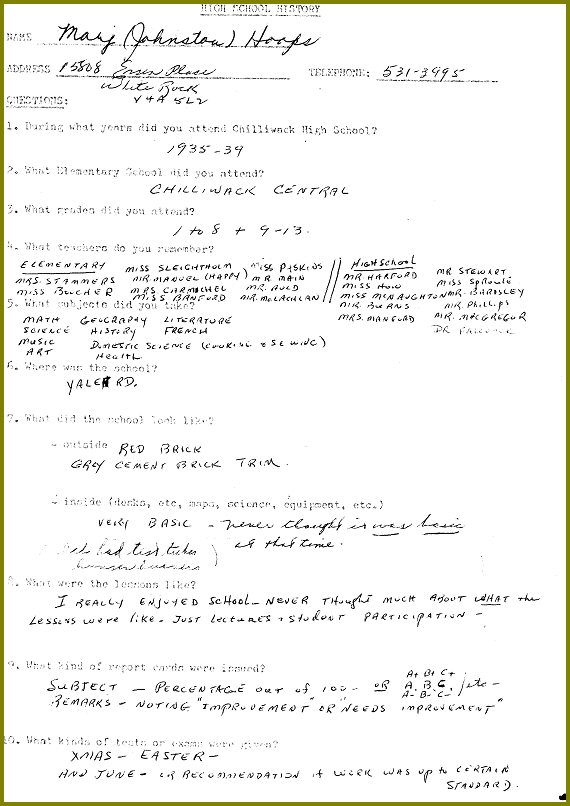 HIGH SCHOOL HISTORY
NAME Marj (Johnston) Hoops
ADDRESS 15808 Place TELEPHONE: 531-3995
White Rock
V4A 5L2
QUESTIONS:
1. During what years did you attend Chilliwack High School?
1935-39
2. What Elementary School did you attend?
CHILLIWACK CENTRAL
3. What grades did you attend?
1 to 8 + 9-13.
4. What teachers do you remember?
ELEMENTARY MISS SLEIGHTHOLM MISS PYSKINS // HIGH SCHOOL MR STEWART
MRS. STAMMERS MR. MANUEL (HAPPY) MR MAIN MR HARFORD MISS SPROULE
MISS BUCHER MRS CARMICHEL MR. AULD MISS HOW MR. BARDSLEY
MISS BANFORD MR. McLACHLAN MISS McNAUGHTON MR. PHILLIPS
MR. BURNS MR. MACGREGOR
MRS. MANFORD DR
5. What subjects did you take?
MATH GEOGRAPHY LITERATURE
SCIENCE HISTORY FRENCH
MUSIC DOMESTIC SCIENCE (COOKING & SEWING)
ART Health
6. Where was the school?
YALE RD.
7. What did the school look like?
- outside RED BRICK
GREY CEMENT BRICK TRIM.
- inside (desks, etc, maps, science, equipment, etc.)
VERY BASIC - never thought is was basic
at that time.
had test tubes
bunsen burners
8. What were the lessons like?
I REALLY ENJOYED SCHOOL - NEVER THOUGHT MUCH ABOUT WHAT the
LESSONS WERE LIKE - JUST LECTURES + STUDENT PARTICIPATION -
9. What kind of report cards were issued?
A+ B+ C+
SUBJECT - PERCENTAGE OUT OF 100 - OR A. B. C. /etc -
A- B- C-
REMARKS - NOTING "IMPROVEMENT" OR "NEEDS IMPROVEMENT"
10. What kinds of tests or exams were given?
XMAS - EASTER -
AND JUNE - OR RECOMMENDATION if WORK WAS up to CERTAIN
STANDARD.